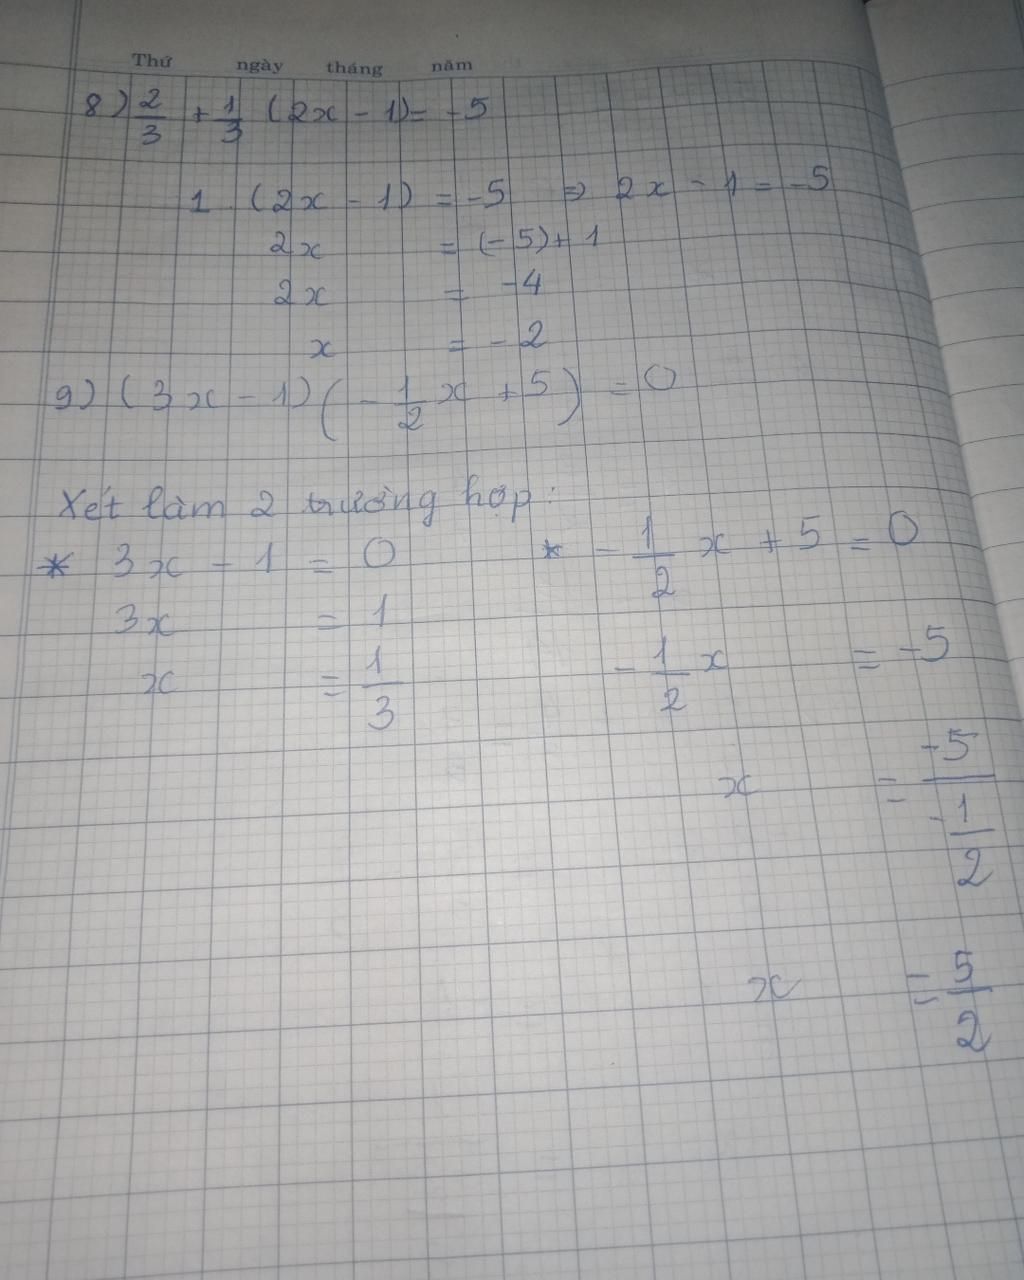 Thứ ngày tháng năm
8) 2/3 + 1/3 (2x - 1) = -5
1 (2x - 1) = -5 => 2x - 1 = -5
2x = (-5) + 1
2x = -4
x = -2
9) (3x - 1) (-1/2 x + 5) = 0
Xét làm 2 trường hợp:
* 3x - 1 = 0
3x = 1
x = 1/3
* -1/2 x + 5 = 0
-1/2 x = -5
x = -5/(-1/2)
x = 5/2